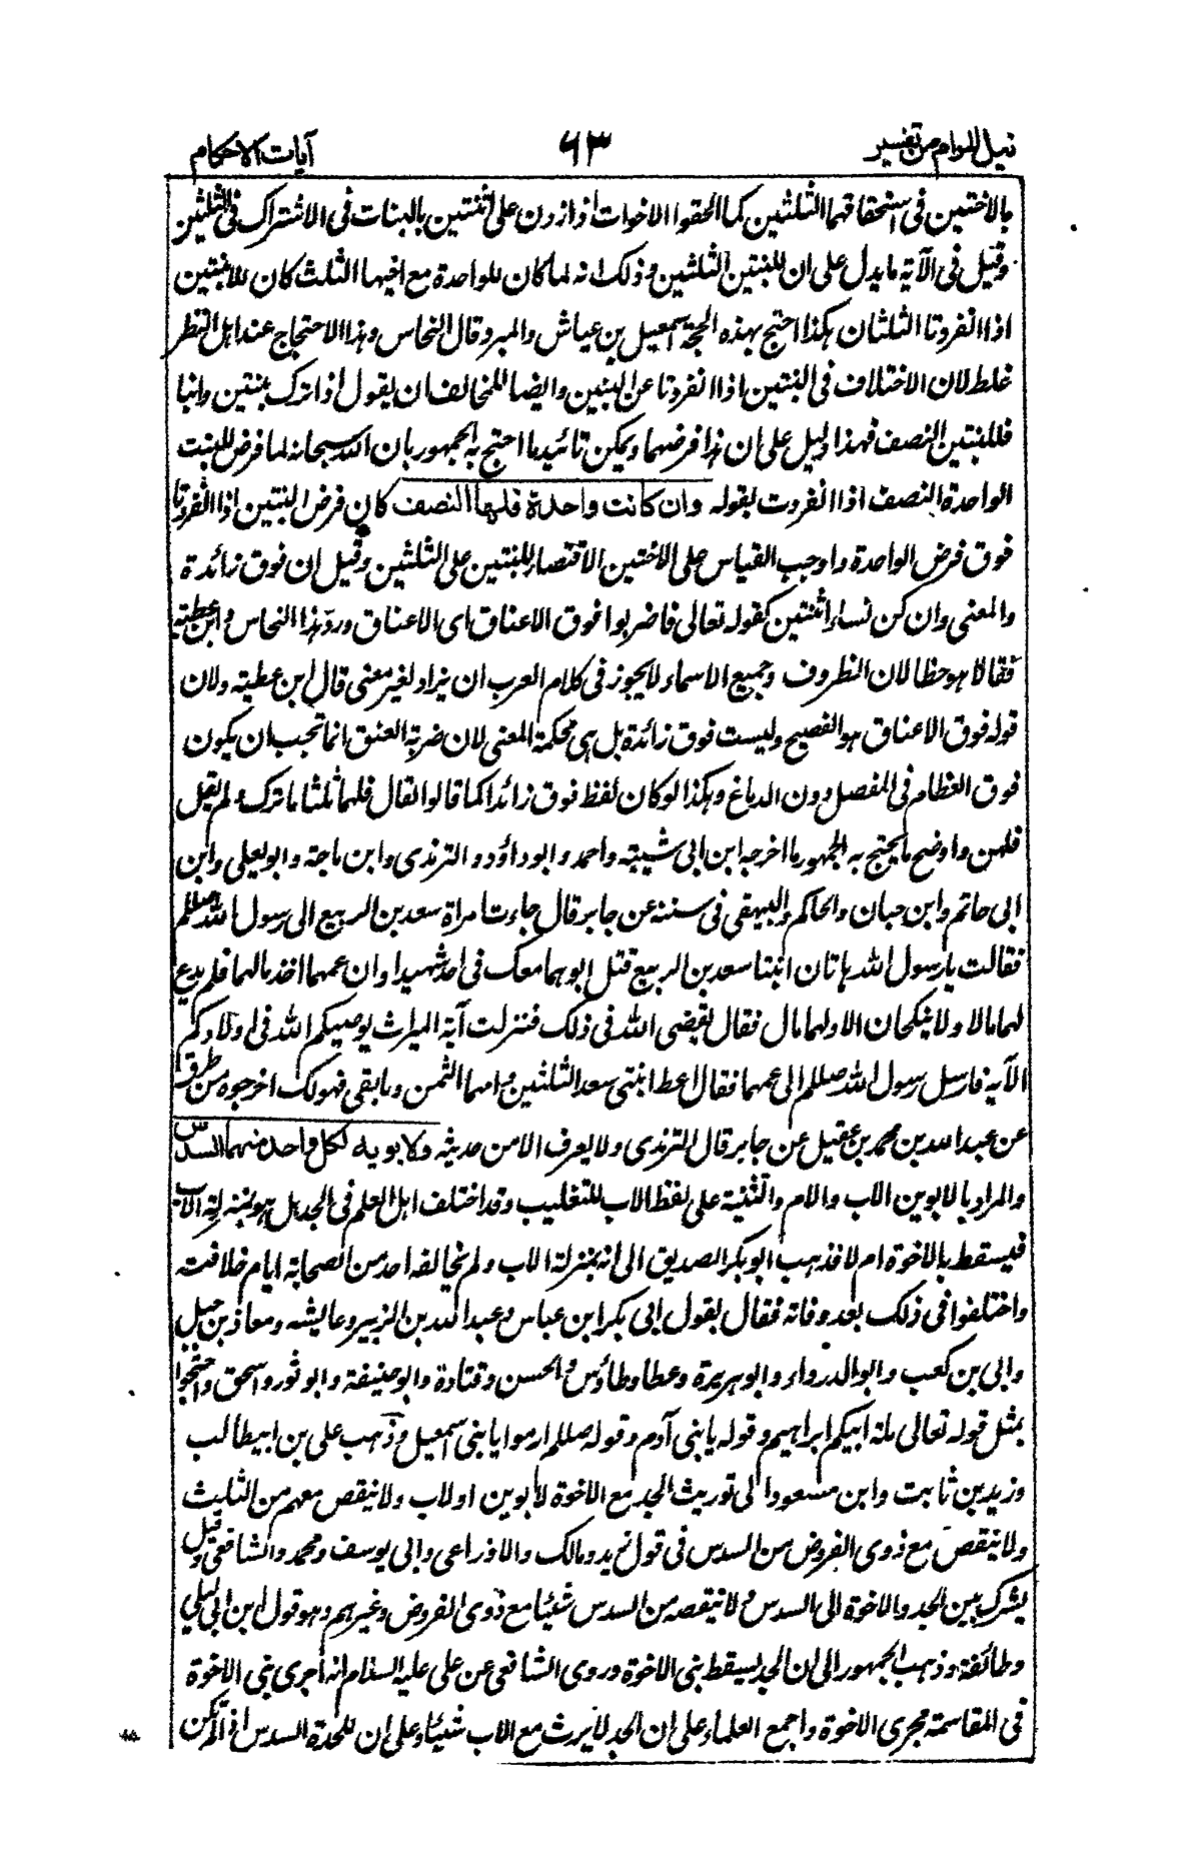 نيل المرام من تفسير ٦٣ آيات الاحكام
بالاختين فى استحقاقهما الثلثين كما الحقوا الاخوات اذا زدن على اثنتين بالبنات فى الاشتراك فى الثلثين
وقيل فى الآية ما يدل على ان للبنتين الثلثين وذلك انه لما كان للواحدة مع اخيها الثلث كان للابنتين
اذا انفردتا الثلثان هكذا احتج بهذه الحجة اسمعيل بن عياش والمبرد قال النحاس وهذا الاحتجاج عند اهل النظر
غلط لان الاختلاف فى البنتين اذا انفردتا عن البنين وايضا للمخالف ان يقول اذا ترك بنتين وابنا
فللبنتين النصف فهذا دليل على ان هذا فرضهما ويمكن تائيد ما احتج به الجمهور بان الله سبحانه لما فرض للبنت
الواحدة النصف اذا انفردت بقوله وان كانت واحدة فلها النصف كان فرض البنتين اذا انفردتا
فوق فرض الواحدة واوجب القياس على الاختين الاقتصار للبنتين على الثلثين وقيل ان فوق زائدة
والمعنى وان كن نساء اثنتين كقوله تعالى فاضربوا فوق الاعناق اى الاعناق ورد هذا النحاس وابن عطية
فقالا هو خطا لان الظروف وجميع الاسماء لا يجوز فى كلام العرب ان تزاد لغير معنى قال ابن عطية ولان
قوله فوق الاعناق هو الفصيح وليست فوق زائدة بل هى محكمة المعنى لان ضربة العنق انما تجب ان يكون
فوق العظام فى المفصل دون الدماغ وهكذا لو كان لفظ فوق زائدا كما قالوا لقال فلهما ثلثا ما ترك ولم يقل
فلهن واوضح ما يحتج به الجمهور ما اخرجه ابن ابى شيبة واحمد وابو داؤد والترمذى وابن ماجة وابو يعلى وابن
ابى حاتم وابن حبان والحاكم والبيهقى فى سننه عن جابر قال جاءت امراة سعد بن الربيع الى رسول الله صللم
فقالت يا رسول الله هاتان ابنتا سعد بن الربيع قتل ابوهما معك فى احد شهيدا وان عمهما اخذ مالهما فلم يدع
لهما مالا ولا ينكحان الا ولهما مال فقال يقضى الله فى ذلك فنزلت آية الميراث يوصيكم الله فى اولادكم
الآية فارسل رسول الله صللم الى عمهما فقال اعط ابنتى سعد الثلثين وامهما الثمن وما بقى فهو لك اخرجوه من طرق
عن عبد الله بن محمد بن عقيل عن جابر قال الترمذى ولا يعرف الا من حديثه ولابويه لكل واحد منهما السدس
والمراد بالابوين الاب والام والتثنية على لفظ الاب للتغليب وقد اختلف اهل العلم فى الجد هل هو بمنزلة الاب
فيسقط به الاخوة ام لا فذهب ابو بكر الصديق الى انه بمنزلة الاب ولم يخالفه احد من الصحابة ايام خلافته
واختلفوا فى ذلك بعد وفاته فقال بقول ابى بكر ابن عباس وعبد الله بن الزبير وعايشه ومعاذ بن جبل
وابى بن كعب وابو الدرداء وابو هريرة وعطا وطاؤس والحسن وقتادة وابو حنيفة وابو ثور واسحق واحتجوا
بمثل قوله تعالى ملة ابيكم ابراهيم وقوله يا بنى آدم وقوله صللم ارموا يا بنى اسمعيل وذهب على بن ابيطالب
وزيد بن ثابت وابن مسعود الى توريث الجد مع الاخوة لابوين او لاب ولا ينقص معهم من الثلث
ولا ينقص مع ذوى الفروض من السدس فى قول زيد ومالك والاوزاعى وابى يوسف ومحمد والشافعى وقيل
يشرك بين الجد والاخوة الى السدس ولا ينقصه من السدس شيئا مع ذوى الفروض وغيرهم وهو قول ابن ابى ليلى
وطائفة وذهب الجمهور الى ان الجد يسقط بنى الاخوة وروى الشافعى عن على عليه السلام انه اجرى بنى الاخوة
فى المقاسمة مجرى الاخوة واجمع العلماء على ان الجد لا يرث مع الاب شيئا وعلى ان للجدة السدس اذا لم تكن